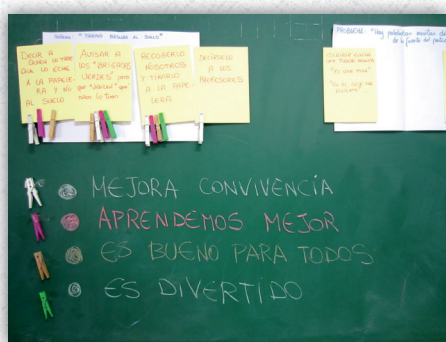 "TIRAMOS BASURA AL SUELO"
DECIR A
QUIEN LO TIRE
QUE LO ECHE
A LA PAPELE-
RA Y NO
AL SUELO
AVISAR A
LOS "BRIGADAS
VERDES" para
que que
niños lo tiran
RECOGERLO
NOSOTROS
Y TIRARLO
A LA PAPE-
LERA
DECÍRSELO
A LOS
PROFESORES
PROBLEMA: "Hay palabras
de la fuente del patio
MEJORA CONVIVENCIA
APRENDEMOS MEJOR
ES BUENO PARA TODOS
ES DIVERTIDO